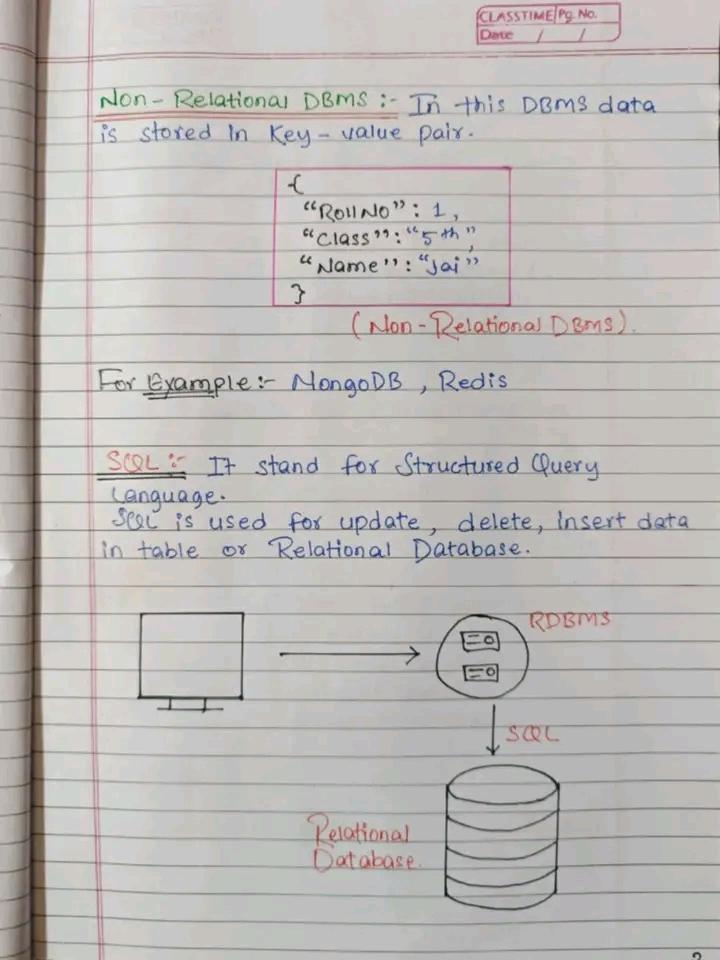 CLASSTIME Pg. No.
Date / /
Non-Relational DBMS :- In this DBMS data
is stored in Key-value pair.
{
"RollNo" : 1,
"Class" : "5th",
"Name" : "Jai"
}
(Non-Relational DBMS).
For Example :- MongoDB, Redis
SQL :- It stand for Structured Query
Language.
SQL is used for update, delete, insert data
in table or Relational Database.
RDBMS
SQL
Relational
Database.